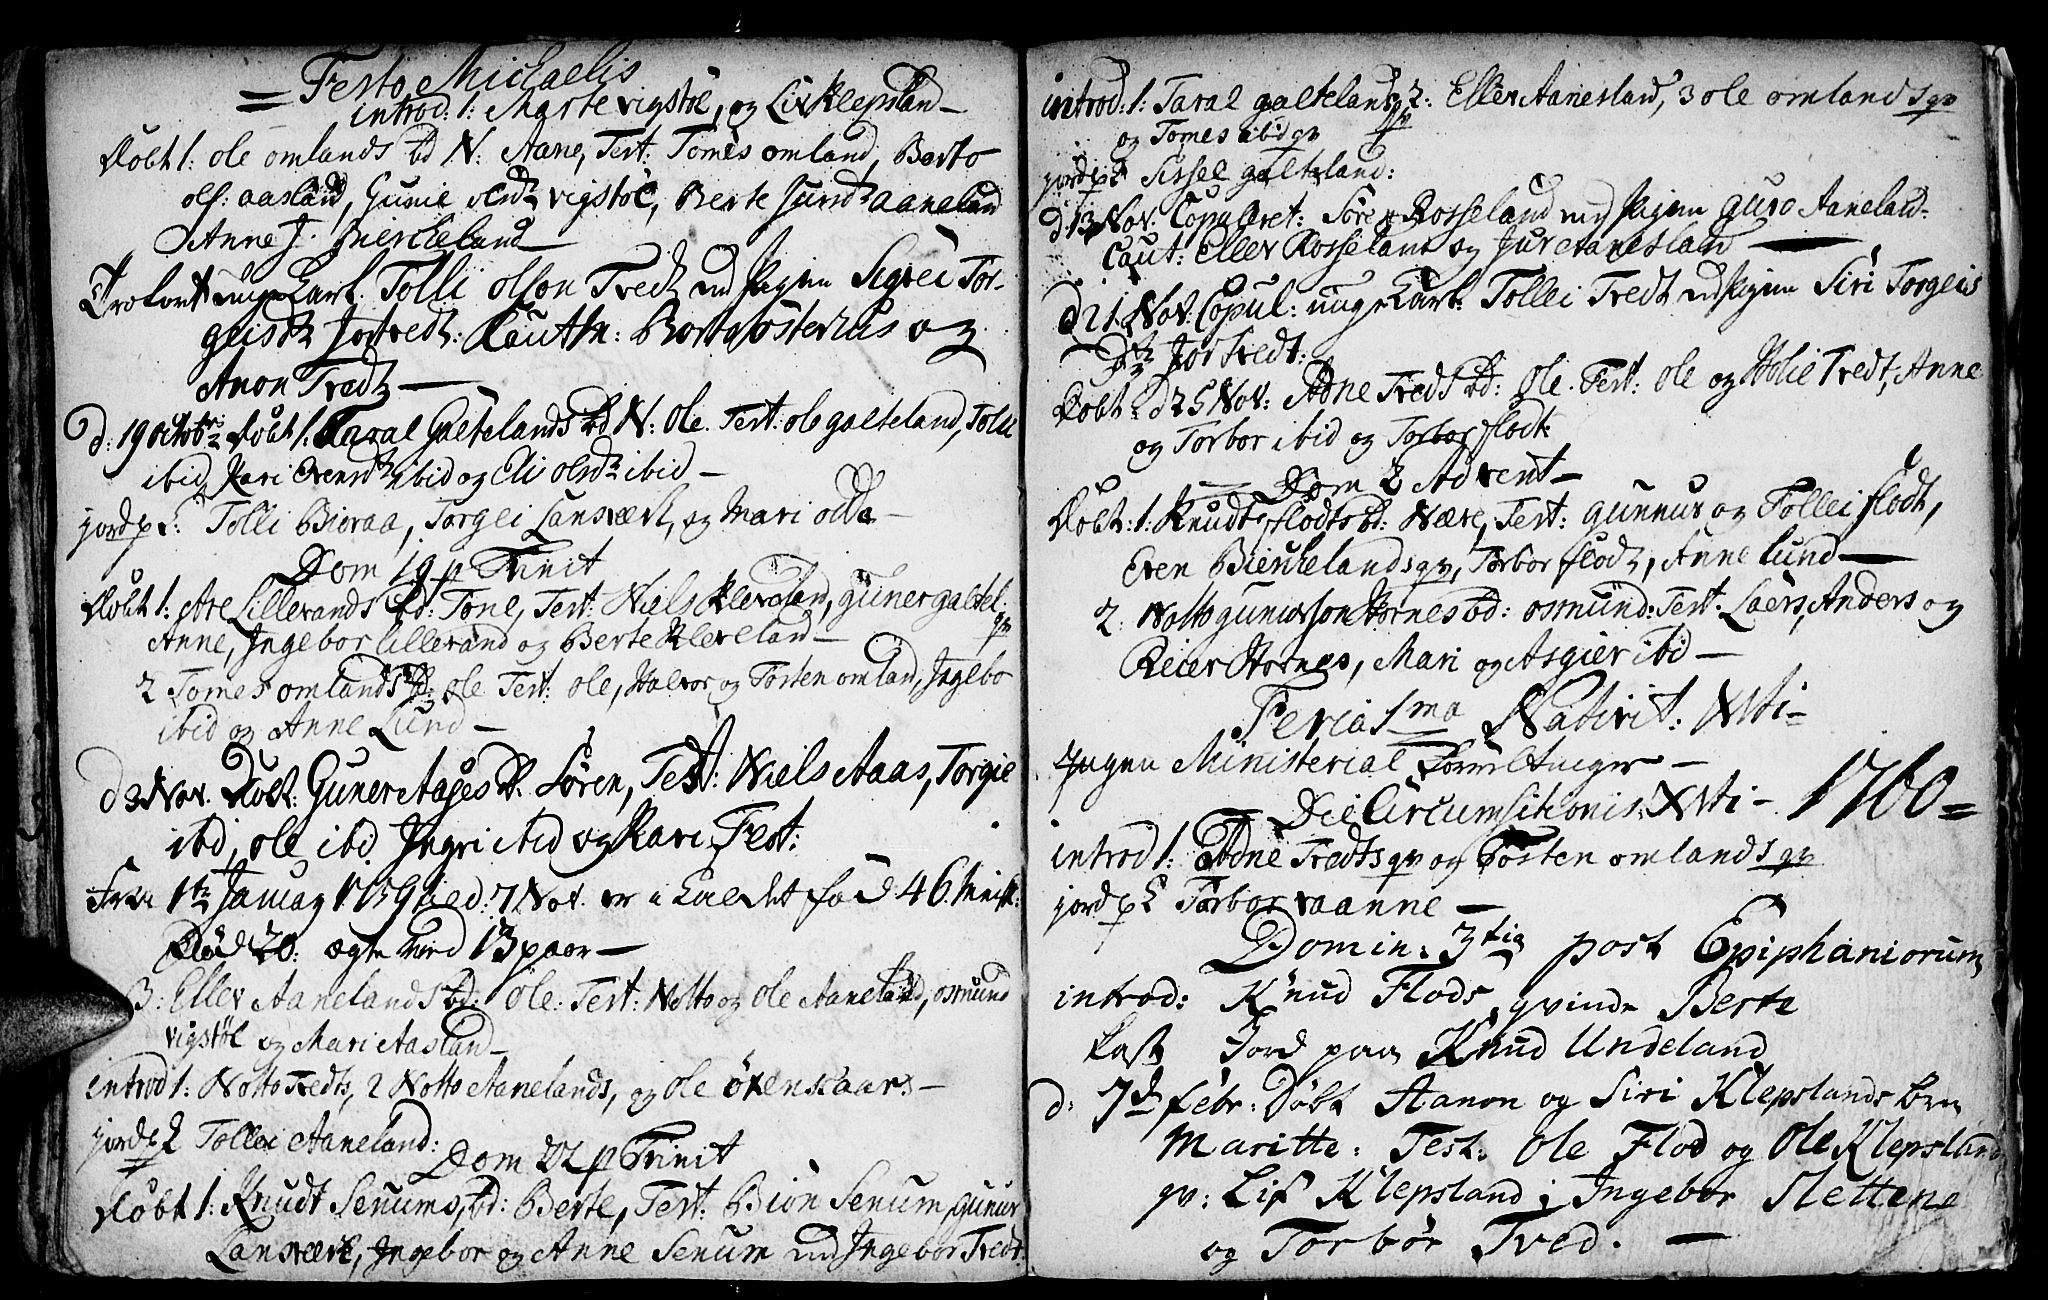 Festo Michaelis
introd: 1: Marte vigstöl, og Liv Klepsland
Döbt 1: ole omlands bd N: Aane, Test: Tomes omland, Berto
ols: aasland, Gunil vigstöl, Berte aaneland
Anne J. Bierkeland
Trolovt unge Karl. Tolli olson Tredt md Pigen Sigrei Tor-
geisdtr Jortredt: Cauth: og
Anon Tredt
d: 19 octobr Döbt 1. Taral Galtelands bd N: Ole. Test: ole galteland, Tolli
ibid, Kari Evensdtr ibid og Eli olsdtr ibid
jord p: Tolli Bioraa, Torgei Lansverk, og Mari odda
Dom 19 p Trinit
Döbt 1: Are Lillerands bd: Tone, Test: Niels Kleveland, guner galtel:
qv
Anne, Ingebor lillerand og Berte Kleveland
2 Tomes omlands bd: ole Test: ole, Halvor og Tosten omland, Ingebo
ibid og Anne Lund
d 3 Nov. Döbt: Guner Aases bd. Sören, Test: Niels Aas, Torgie
ibid, ole ibd Ingri ibid og Kari Fest:
Fra 1te January 1759 til d: 7 Nov. er i Kaldet föd 46 Mnsk:
Död 20: ægte vied 13 paar
3: Ellev Aanelands bd: Ole: Test: Notto og ole Aaneland, osmund
vigstöl og Mari Aasland
introd 1: Notto Tredts, 2 Notto Aanelands, og ole öxenskaar:
jord p Tollei Aaneland:
Dom 22 p Trinit
Döbt 1: Knudt Senums, bd: Berte, Test: Biön Senum, gunur
Lansverk, Ingebor og Anne Senum md Ingebor Tredt:
introd: 1: Taral galtelands qv 2: Ellev Aanesland, 3 ole omlands qv
og Tomes ibid qv
jord p: Sissel galteland:
d. 13 Nov. Copuleret: Sören Rosseland md Pigen guro Aaneland:
Caut: Ellev Rosseland og Jur Aanesland
d 21. Nov: Copul: unge Karl: Tollei Tredt md Pigen Siri Torgeis
dtr Jortredt:
Döbt: d 25 Nov: Adne Tredts bd: Ole. Test: ole og Holie Tredt, Anne
og Torbor ibid og Torbor flodt:
Dom 2 Advent
Döbt: 1. Knudt flodts bd: Nære, Test: gunnur og Tollei flodt,
Even Bierkelands qv, Torbor flodt, Anne lund
2. Notto gunuvson Hornes bd: osmund: Test: Laers, Anders og
Reier Hornes, Mari og Asgier ibid
Feria 1ma Nativit: Xsti
Ingen Ministerial
Die Circumsitionis Xsti 1760
introd 1: Adne Tredts qv og Tosten omlands qv
jord p Torbor vaanne
Domin: 3tia post Epiphaniorum,
introd: Knud Flods qvinde Berte
kast Jord paa Knud Undeland
d. 7de febr: Döbt Aanon og Siri Klepslands barn
Maritte: Test: Ole Flod og Ole Klepsland
qv: Liv Klepsland; Ingebor Slettene
og Torbör Tved.